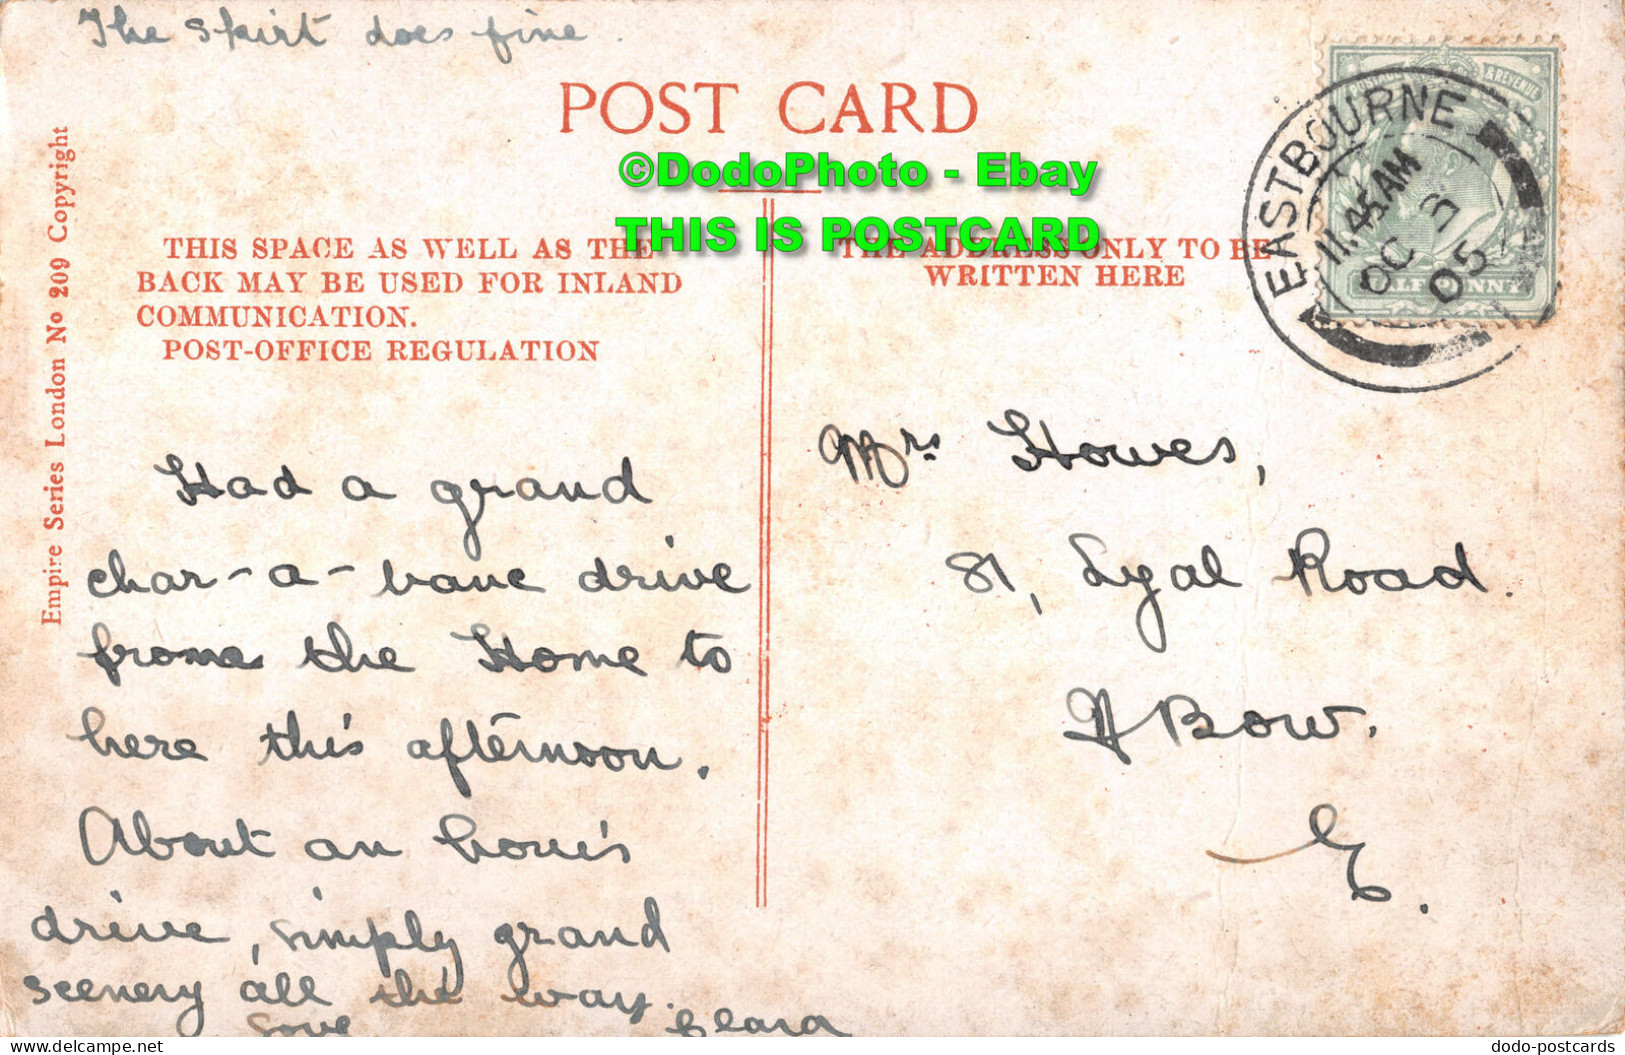 The skirt does fine.
POST CARD
©DodoPhoto - Ebay
THIS IS POSTCARD
EASTBOURNE
11.45AM
OC
05
& REVENUE
HALFPENNY
Empire Series London No 209 Copyright
THIS SPACE AS WELL AS THE
BACK MAY BE USED FOR INLAND
COMMUNICATION.
POST-OFFICE REGULATION
THE ADDRESS ONLY TO BE
WRITTEN HERE
Had a grand
char-a-banc drive
from the Home to
here this afternoon.
About an hour's
drive, simply grand
scenery all the way.
Love Clara
Mrs Howes,
81, Lyal Road.
Bow.
E.
dodo-postcards